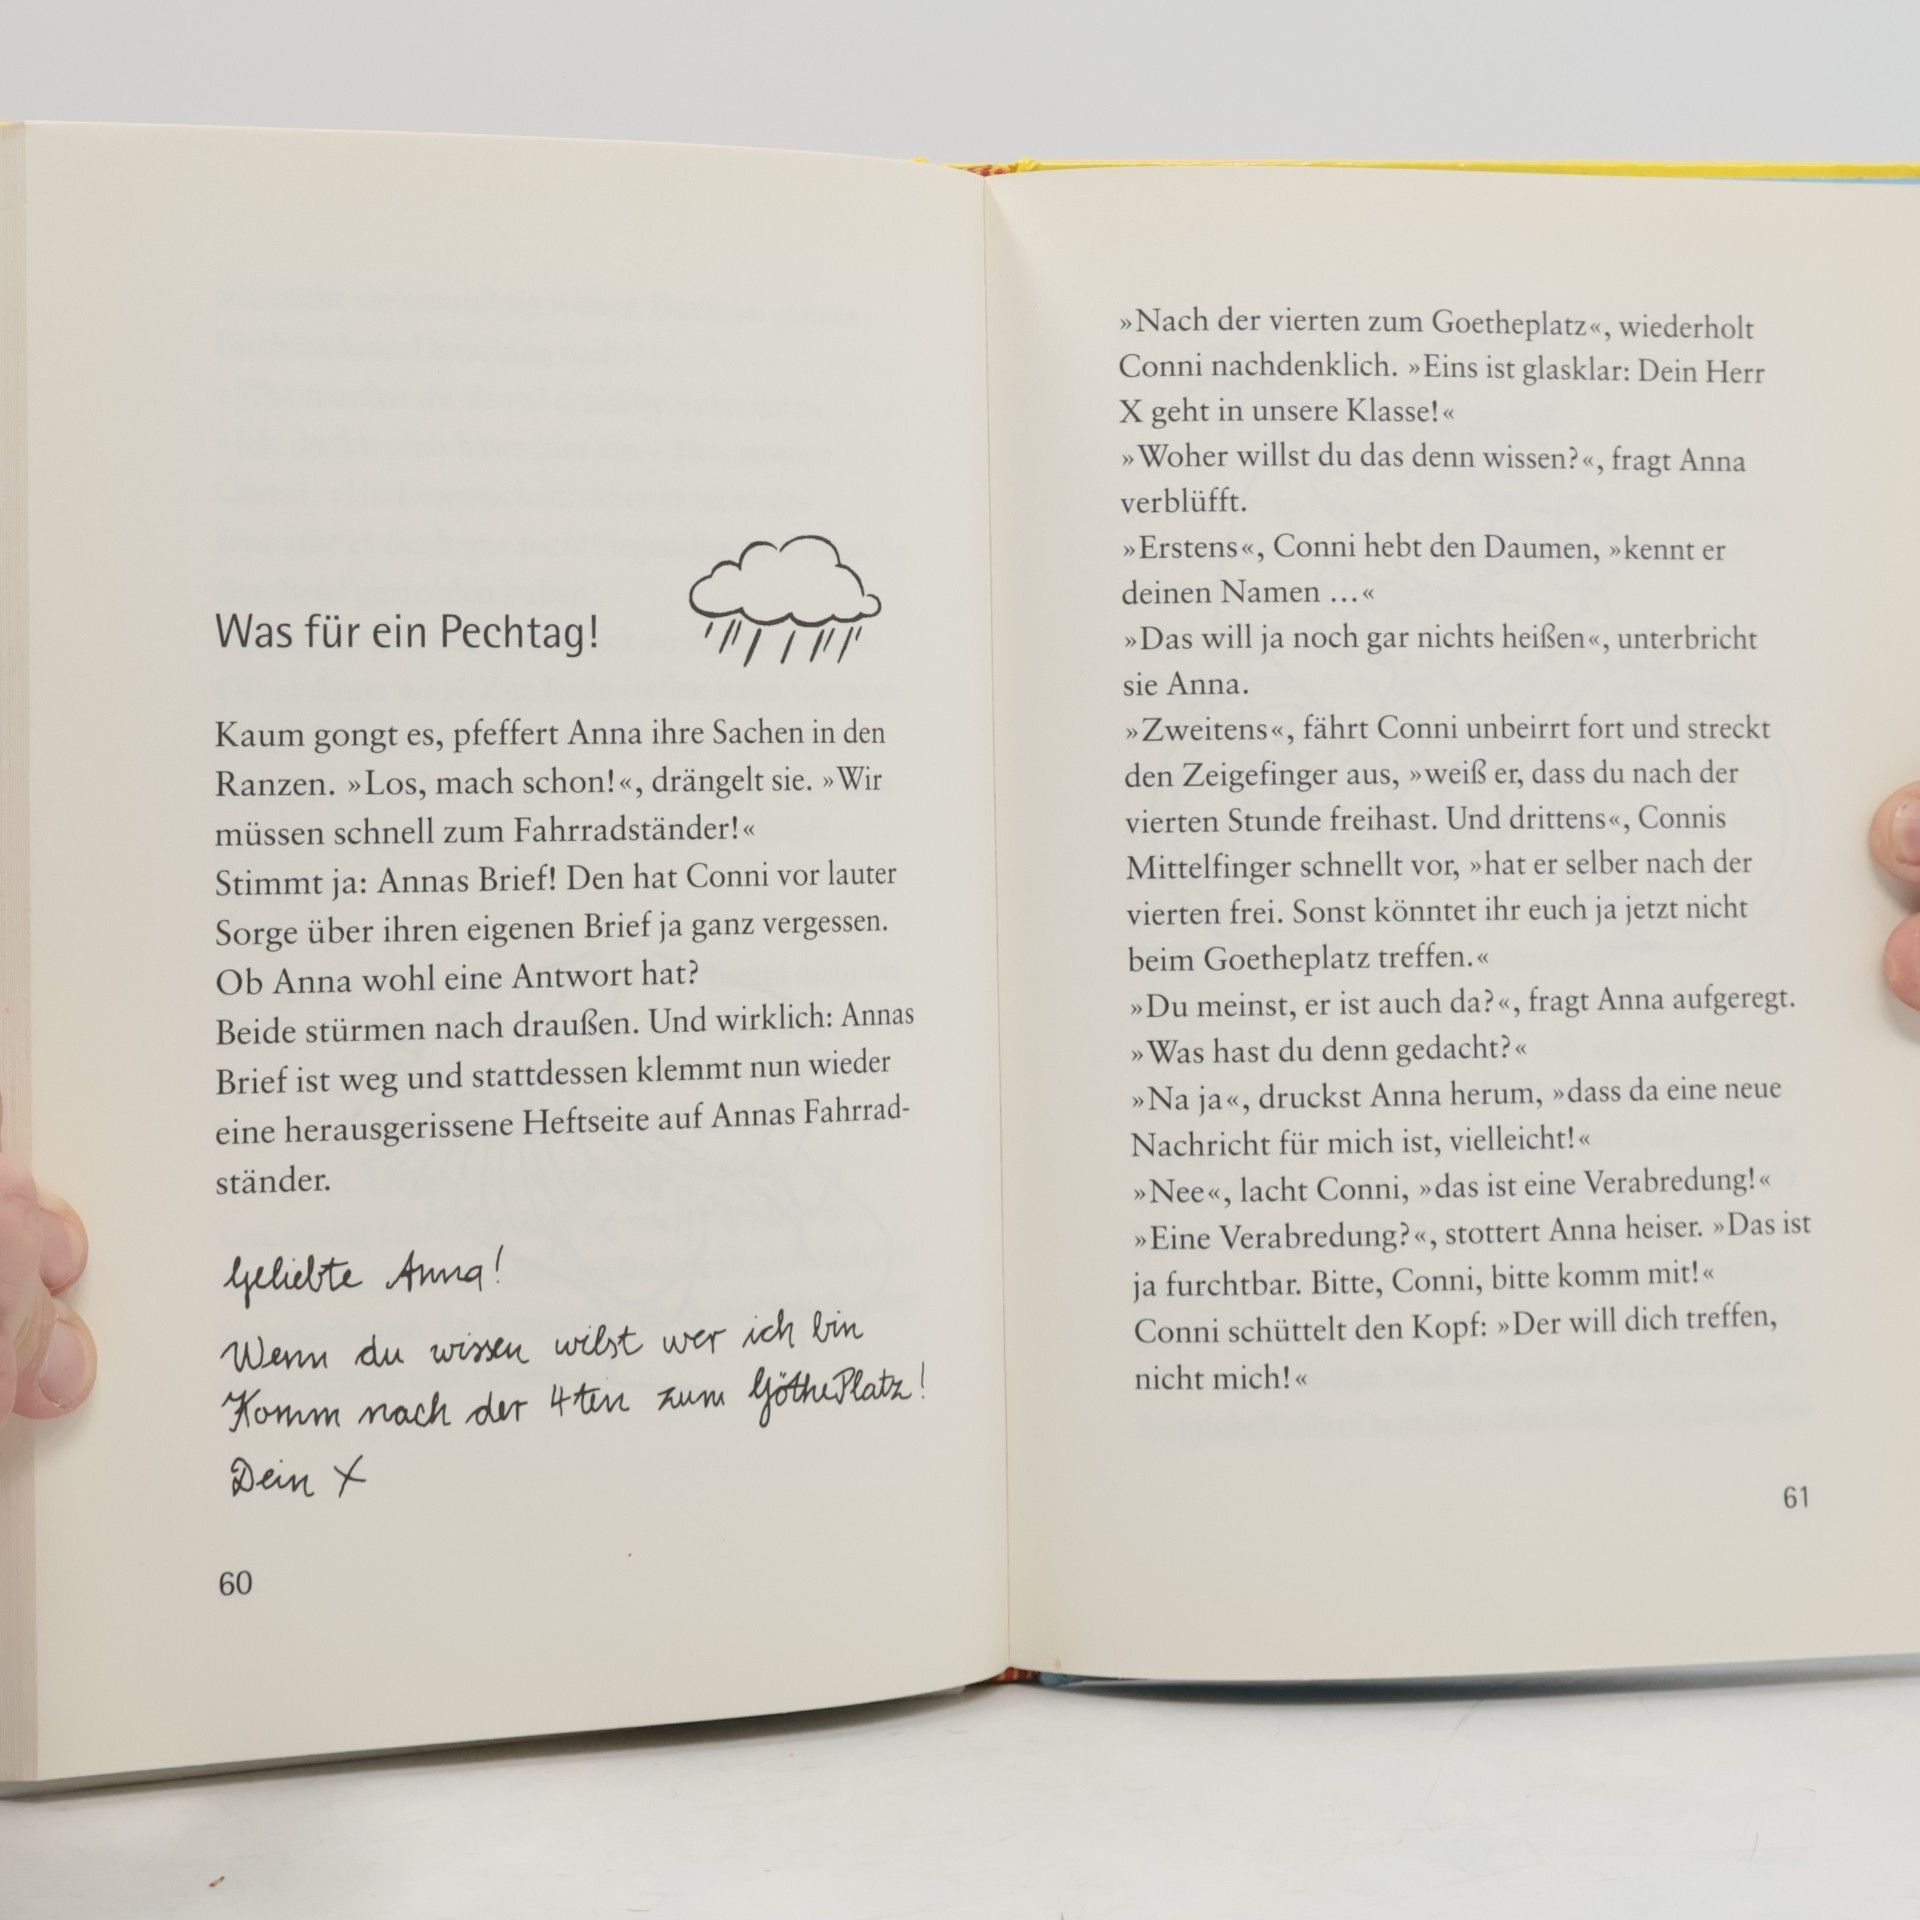 Was für ein Pechtag!
Kaum gongt es, pfeffert Anna ihre Sachen in den
Ranzen. »Los, mach schon!«, drängelt sie. »Wir
müssen schnell zum Fahrradständer!«
Stimmt ja: Annas Brief! Den hat Conni vor lauter
Sorge über ihren eigenen Brief ja ganz vergessen.
Ob Anna wohl eine Antwort hat?
Beide stürmen nach draußen. Und wirklich: Annas
Brief ist weg und stattdessen klemmt nun wieder
eine herausgerissene Heftseite auf Annas Fahrrad-
ständer.
Geliebte Anna!
Wenn du wissen wilst wer ich bin
Komm nach der 4ten zum GöthePlatz!
Dein X
60
»Nach der vierten zum Goetheplatz«, wiederholt
Conni nachdenklich. »Eins ist glasklar: Dein Herr
X geht in unsere Klasse!«
»Woher willst du das denn wissen?«, fragt Anna
verblüfft.
»Erstens«, Conni hebt den Daumen, »kennt er
deinen Namen …«
»Das will ja noch gar nichts heißen«, unterbricht
sie Anna.
»Zweitens«, fährt Conni unbeirrt fort und streckt
den Zeigefinger aus, »weiß er, dass du nach der
vierten Stunde freihast. Und drittens«, Connis
Mittelfinger schnellt vor, »hat er selber nach der
vierten frei. Sonst könntet ihr euch ja jetzt nicht
beim Goetheplatz treffen.«
»Du meinst, er ist auch da?«, fragt Anna aufgeregt.
»Was hast du denn gedacht?«
»Na ja«, druckst Anna herum, »dass da eine neue
Nachricht für mich ist, vielleicht!«
»Nee«, lacht Conni, »das ist eine Verabredung!«
»Eine Verabredung?«, stottert Anna heiser. »Das ist
ja furchtbar. Bitte, Conni, bitte komm mit!«
Conni schüttelt den Kopf: »Der will dich treffen,
nicht mich!«
61